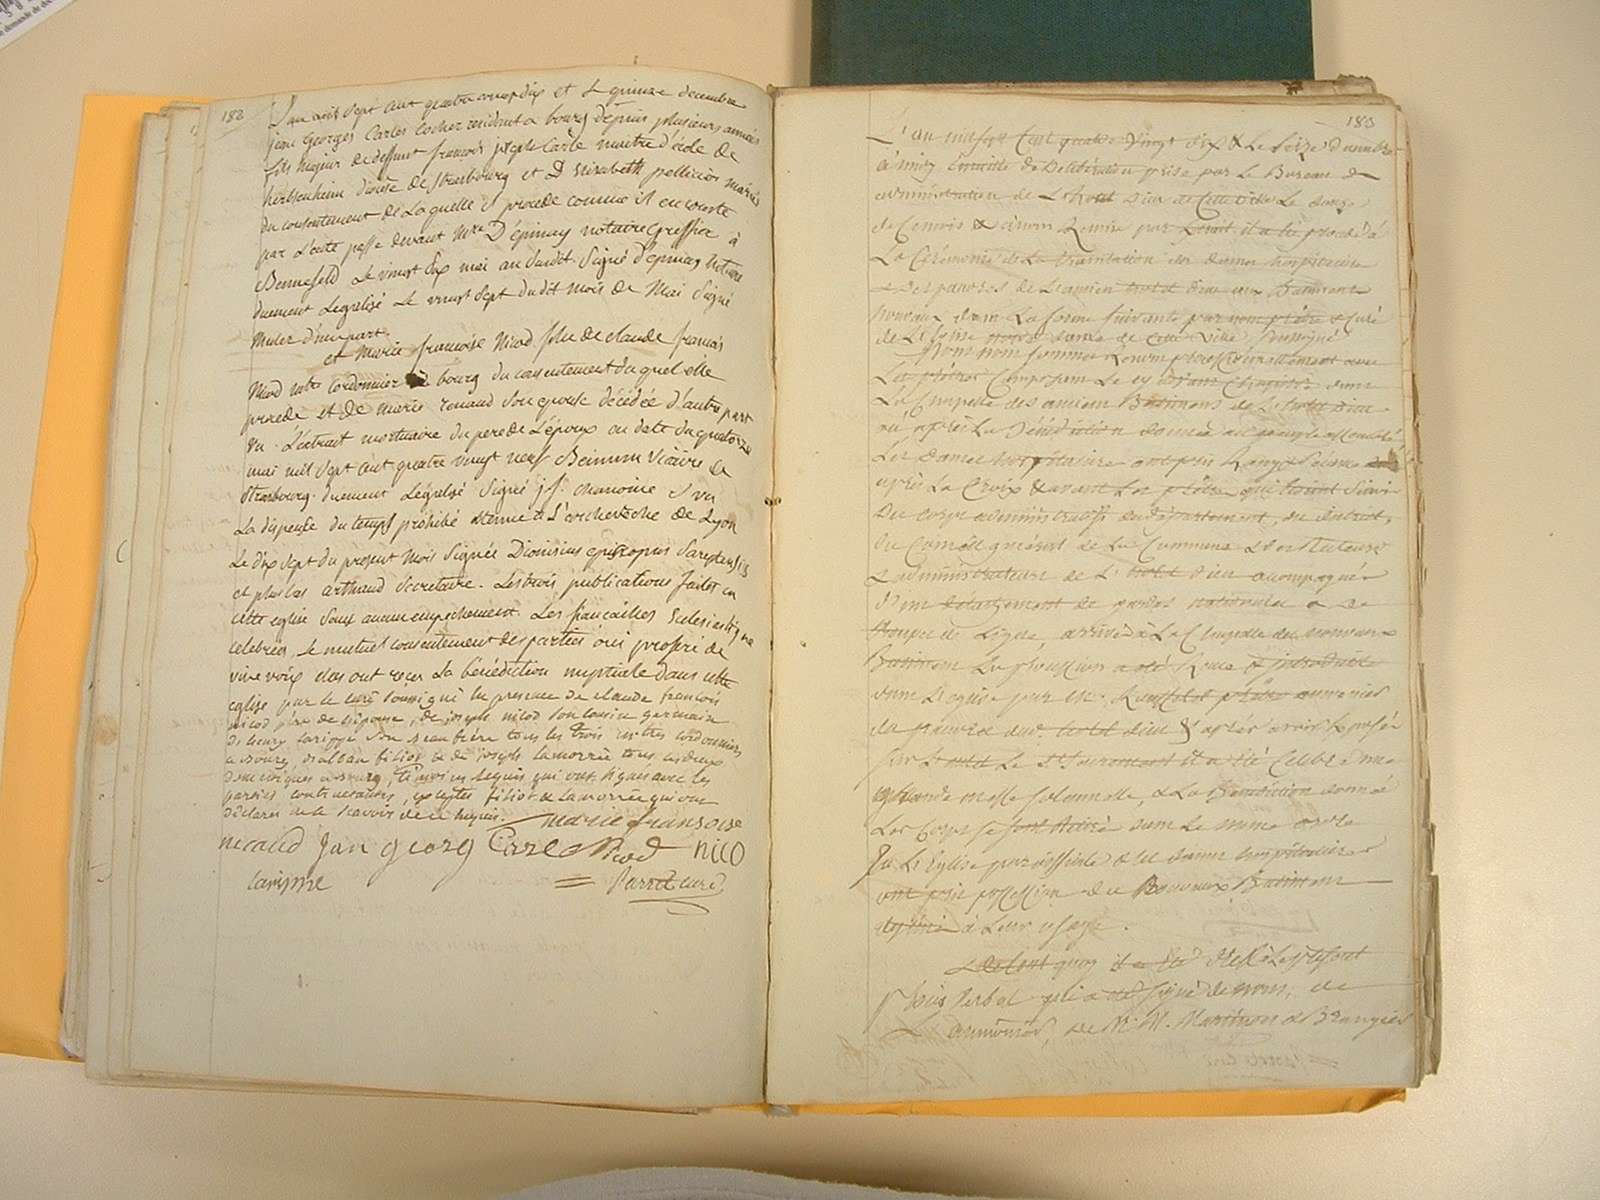 182
L'an mil sept cent quatre vingt dix et le quinze decembre
jean Georges Carles cocher residant a bourg depuis plusieurs années
fils majeur de deffunt francois joseph Carle maitre d'école de
herbsenheim diocèse de Strasbourg et D Elizabeth pellicios mariés
du consentement de Laquelle il procede comme il en conste
par l'acte passé devant Mre D'épinay notaire Greffier à
Bennefeld le vingt six mai an susdit Signé d'épinay notaire
duement Légalisé Le vingt sept dudit mois de Mai Signé
d'une part.
et Marie francoise Nicod fille de claude francois
Nicod mtre Cordonnier à bourg du consentement duquel elle
procede et de marie renaud son epouse décédée d'autre part
vu L'extrait mortuaire du pere de L'époux en date du quatorze
mai mil sept cent quatre vingt neuf Vicaire de
Strasbourg duement Légalisé Signé chanoine et vu
La dispense du temps prohibé obtenue à L'archeveché de Lyon
Le dix sept du present Mois Signée Dionisius episcopus Sareptensis
et plus bas arthaud Secretaire. Les trois publications faites en
cette eglise sans aucun empechement Les fiancailles Eclesiastique
celebrées, le mutuel consentement des parties oui proferé de
vive voix elles ont recu La bénédiction nuptiale dans cette
eglise par le curé soussigné En presence de claude francois
nicod père de L'épouse, de joseph nicod son cousin germain
de henry Larippe son beau frère tous les trois mitres cordonniers
a bourg, filiot & de joseph lamorrée tous les deux
domestiques a bourg, témoins requis qui ont signés avec les
parties contractantes, exceptés filiot & lamorrée qui ont
déclarés ne le scavoir de ce requis. marie fransoise
nicaud Jan georg Carle Nicod nico
larippe Parret curé
183
L'an mil sept Cent quatre Vingt dix & Le Seize decembre
de Délibération prise par Le Bureau de
administration de L'hotel Dieu de Cette Ville Le douze
il a été procédé à
La Cérémonie de La translation des dames hospitalière
& des pauvres de L'ancien hotel Dieu aux Batiments
nouveaux dans La forme Suivante par nous prêtre & Curé
de L'Eglise notre dame de cette Ville, Soussigné
Nous nous sommes rendu processionnellement avec
Les prêtres Composant Le cy devant Chapitre dans
La Chapelle des anciens Batiments de L'hotel Dieu
où après La Bénédiction donnée au peuple assemblé
Les dames hospitalière ont pris Rang
après La Croix & avant Les prêtres qui étoient Suivis
Du Corps administratif du département, du district,
du Conseil general de La Commune
& administrateurs de L'hotel Dieu accompagnés
D'un détachement de gardes nationales & de
troupes de Ligne, arrivés à La Chapelle des nouveaux
Batiment La procession a été
dans L'eglise par M. prêtre aumonier
des pauvres dud. hotel dieu & après avoir Exposée
le St Sacrement il a été Célébré une
grande messe Solemnelle, & La Bénédiction donnée
Les Corps se sont Retiré dans Le meme ordre
& Les dames hospitalière
ont pris possession des nouveaux Batiment
destiné à Leur usage.
de tout quoy il a été dressé Le présent
procès Verbal qui a été signé de nous, de
L'aumonier, de Mr M. Marinon & Brangier